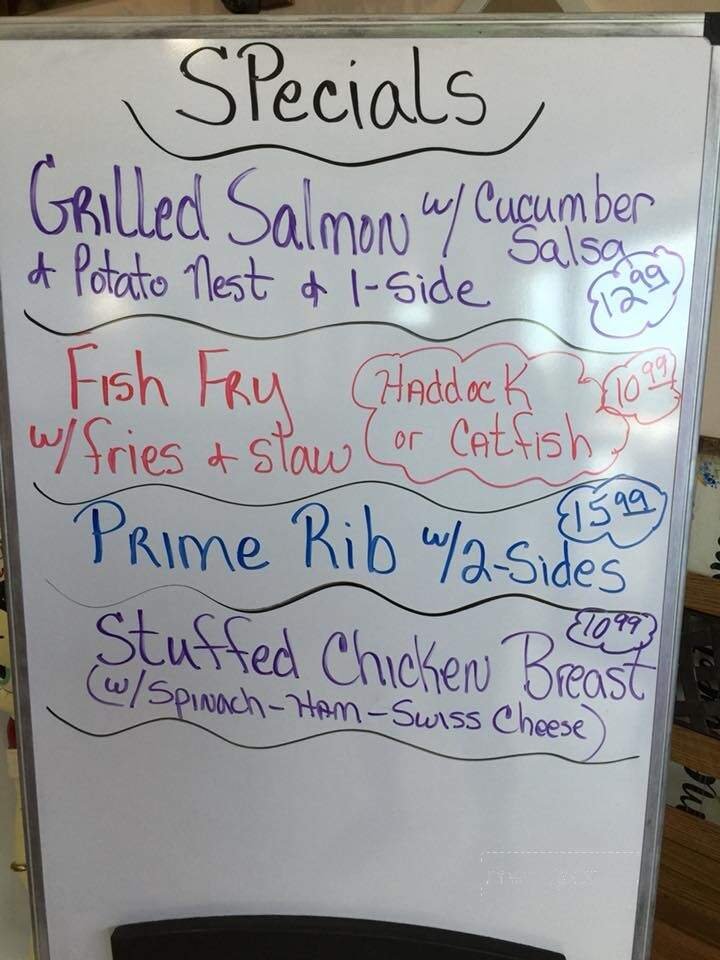 SPecials
GRilled Salmon w/ Cucumber
Salsa
& Potato Nest & 1-Side
12.99
Fish FRy
Haddock
10.99
w/ fries & slaw
or Catfish
15.99
PRime Rib w/2-Sides
10.99
Stuffed Chicken Breast
(w/Spinach-Ham-Swiss Cheese)